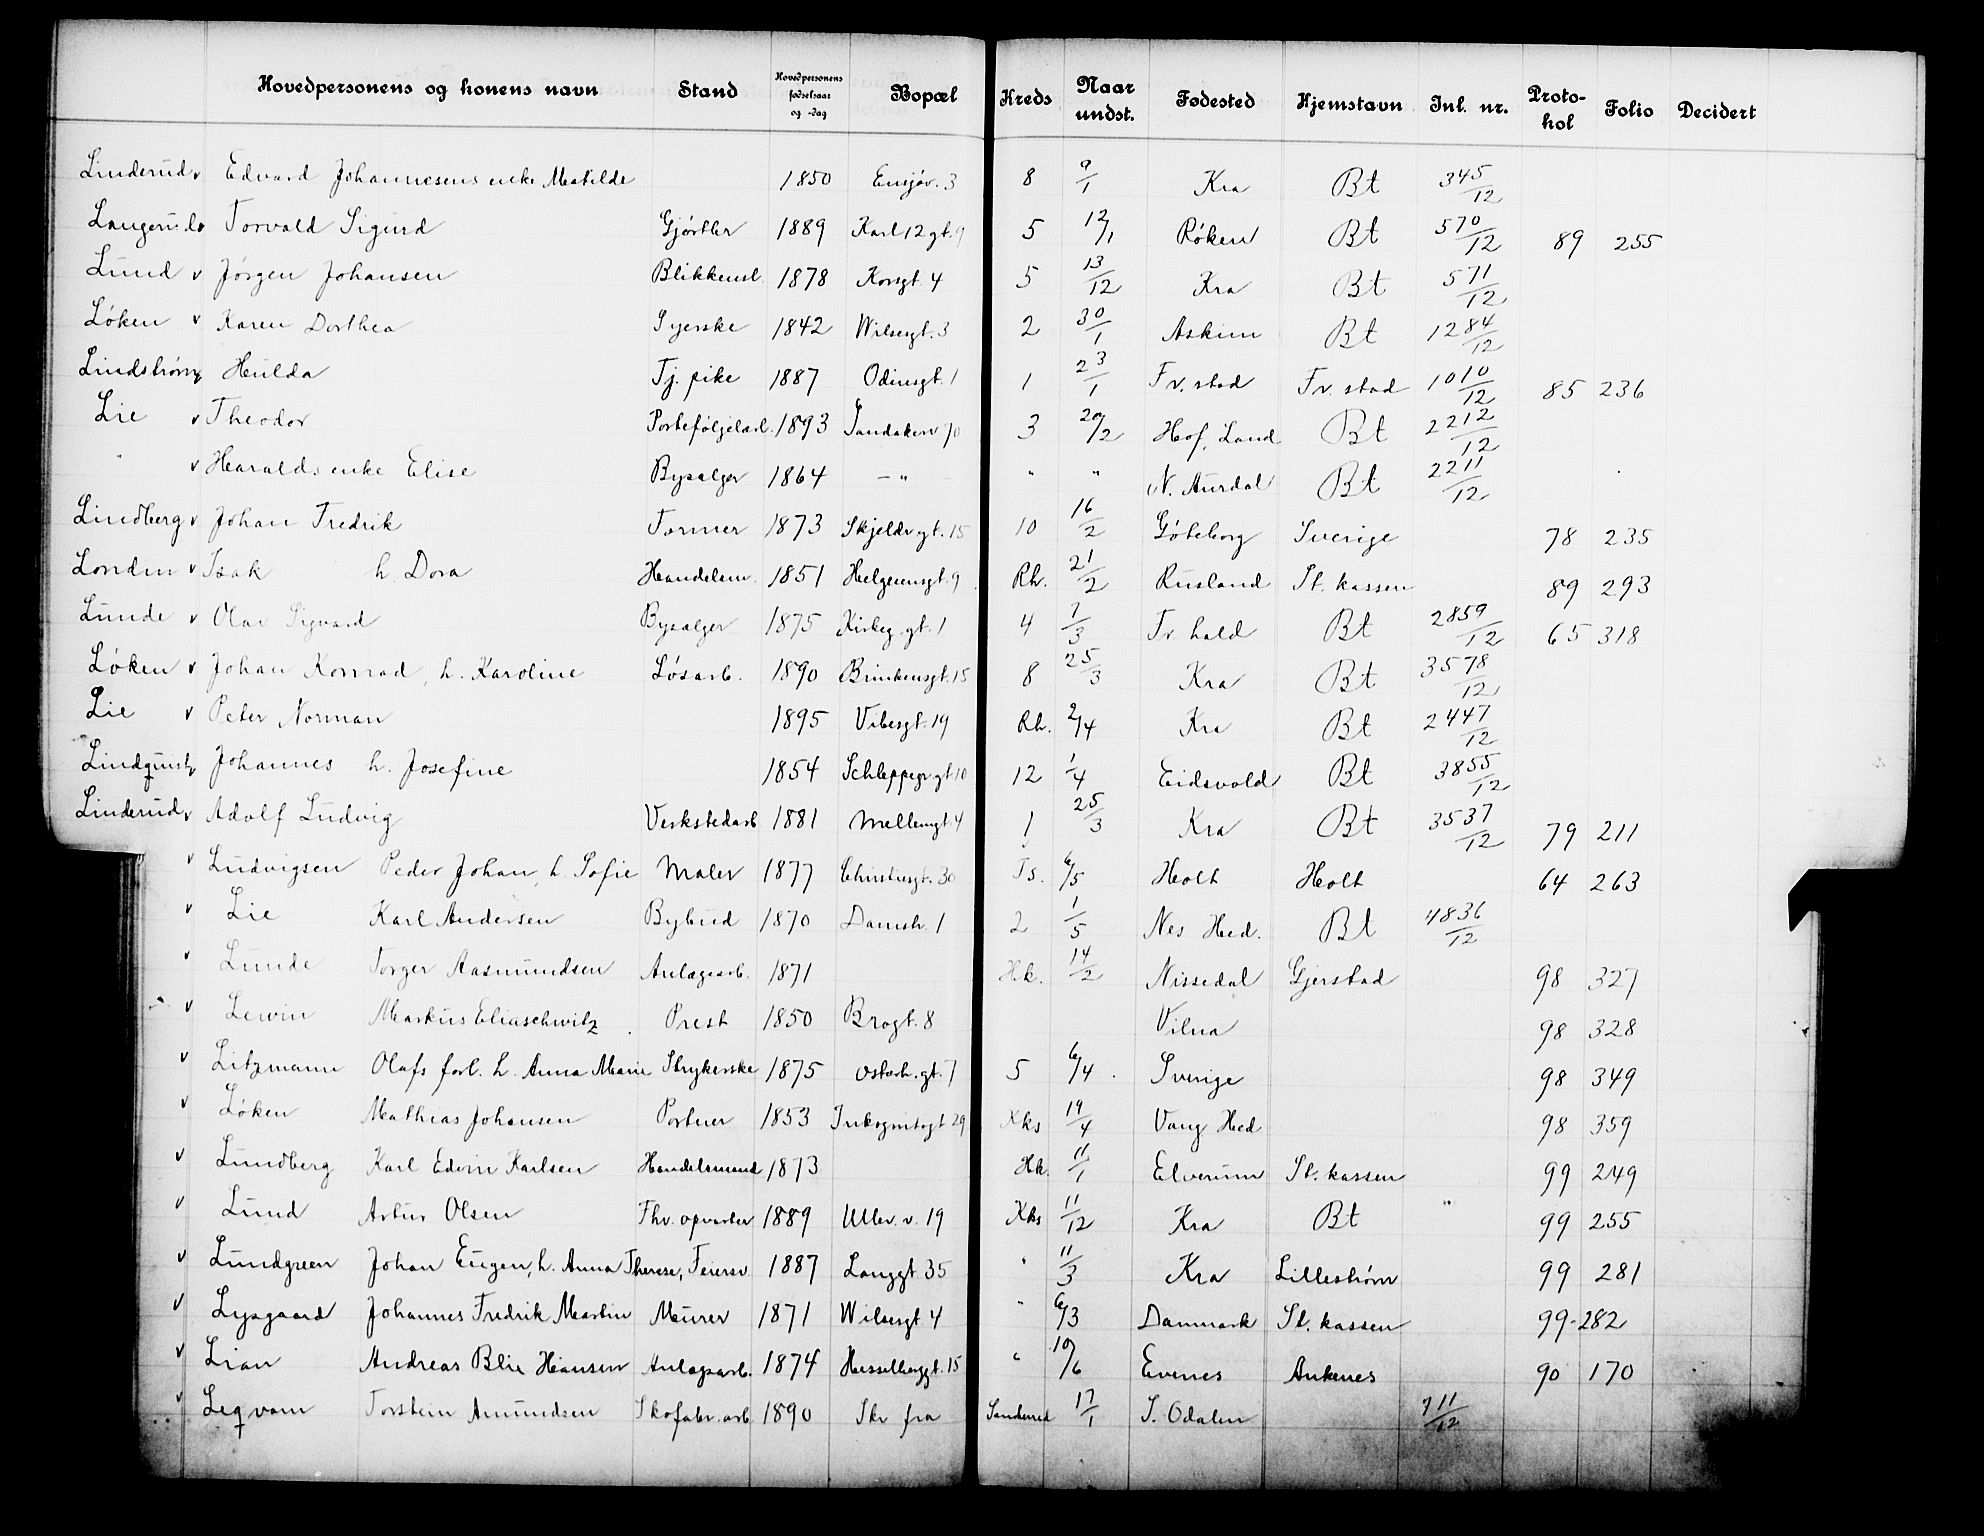 Hovedpersonens og konens navn Stand Hovedpersonens fødselsaar og -dag Bopæl Kreds Naar undst. Fødested Hjemstavn Inl. nr. Proto-kol Folio Decidert
Linderud v Edvard Johannesens enke Matilde 1850 Ensjøv. 3 8 9/1 Kra Bt 345/12
Langerud v Torvald Sigurd Gjørtler 1889 Karl 12 gt. 9 5 12/1 Røken Bt 570/12 89 255
Lund v Jørgen Johansen Blikkensl. 1878 Korsgt. 4 5 13/12 Kra Bt 571/12
Løken v Karen Dorthea Syerske 1842 Wilsesgt. 3 2 30/1 Askim Bt 1284/12
Lindstrøm v Hulda Tj. pike 1887 Odinsgt. 1 1 23/1 Fr. stad Fr. stad 1010/12 85 236
Lie v Theodor Porteføljearb. 1893 Sandakerv 70 3 20/2 Hof, Land Bt 2212/12
" v Haralds enke Elise Bysælger 1864 — " " " N. Aurdal Bt 2211/12
Lindberg v Johan Fredrik Former 1873 Skjeldr gt. 15 10 16/2 Gøteborg Sverige 78 235
Londin v Isak h. Dora Handelsm. 1851 Helgesensgt. 9 Rh. 21/2 Rusland St. kassen 89 293
Lunde v Olav Sigvard Bysælger 1875 Kirkeg. gt. 1 4 7/3 Fr. hald Bt 2859/12 65 318
Løken v Johan Konrad, h. Karoline Løsarb. 1890 Brinkensgt. 15 8 25/3 Kra Bt 3578/12
Lie v Peter Norman 1895 Vibesgt. 19 Rh. 2/4 Kra Bt 2447/12
Lindquist v Johannes h. Josefine 1854 Schleppegr gt. 10 12 1/4 Eidsvold Bt 3855/12
Linderud v Adolf Ludvig Verkstedarb 1881 Mellemgt 4 1 25/3 Kra Bt 3537/12 79 211
v Ludvigsen Peder Johan, h. Sofie Maler 1877 Christiesgt. 30 Ts. 6/5 Holt Holt 64 263
v Lie Karl Andersen Bybud 1870 Damstr. 1 2 1/5 Nes Hed. Bt 4836/12
v Lunde Torger Aasmundsen Anlægsarb. 1871 Hk. 14/2 Nissedal Gjerstad 98 327
v Lewin Markus Eliaschwitz Prest 1850 Brogt. 8 Vilna 98 328
v Litzmann Olafs forl. h. Anna Marie Strykerske 1875 Osterh. gt. 7 5 6/4 Sverige 98 349
v Løken Mathias Johansen Portner 1853 Inkognitogt 29 Kks 19/4 Vang Hed 98 359
v Lundberg Karl Edvin Karlsen Handelsmand 1873 Hk. 11/1 Elverum St. kassen 99 249
v Lund Artur Olsen Fhv. opvarter 1889 Ullev. v. 19 Kks 11/12 Kra Bt " 99 255
v Lundgreen Johan Eugen, h. Anna Therese, Feiersv. 1887 Langgt. 35 " 11/3 Kra Lillestrøm 99 281
v Lysgaard Johannes Fredrik Martin Murer 1871 Wilsesgt 4 " 6/3 Danmark St. kassen 99 - 282
v Lian Andreas Blix Hansen Anlægsarb. 1874 Hesselberggt. 15 " 10/6 Evenes Ankenes 90 170
v Leqvam Torstein Amundsen Skofabr. arb 1890 Skr fra Sanderud 17/1 S. Odalen 711/12